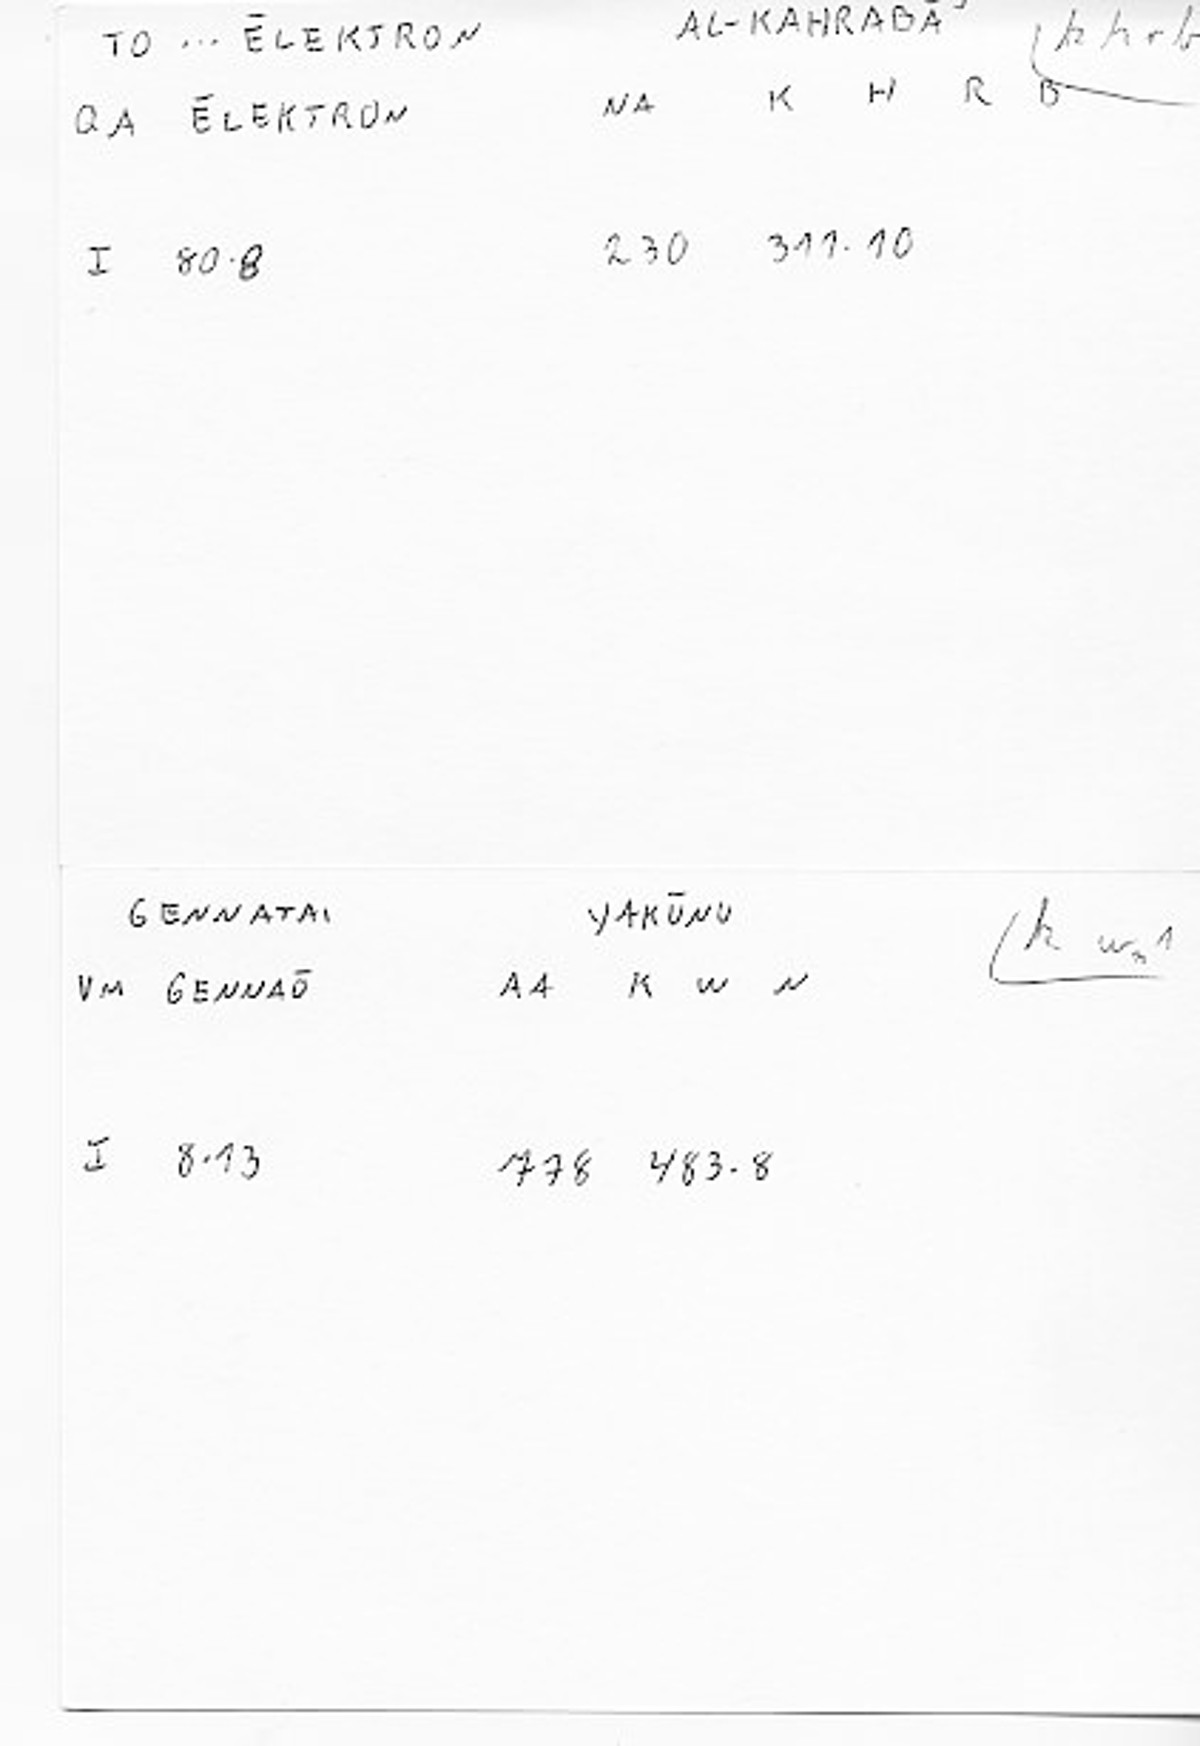 TO ... ĒLEKTRON AL-KAHRABĀʾ khrb
QA ĒLEKTRON NA K H R B
I 80.8 230 311.10
GENNATAI YAKŪNU
VM GENNAŌ AA K W N k wn1
I 8.13 778 483.8